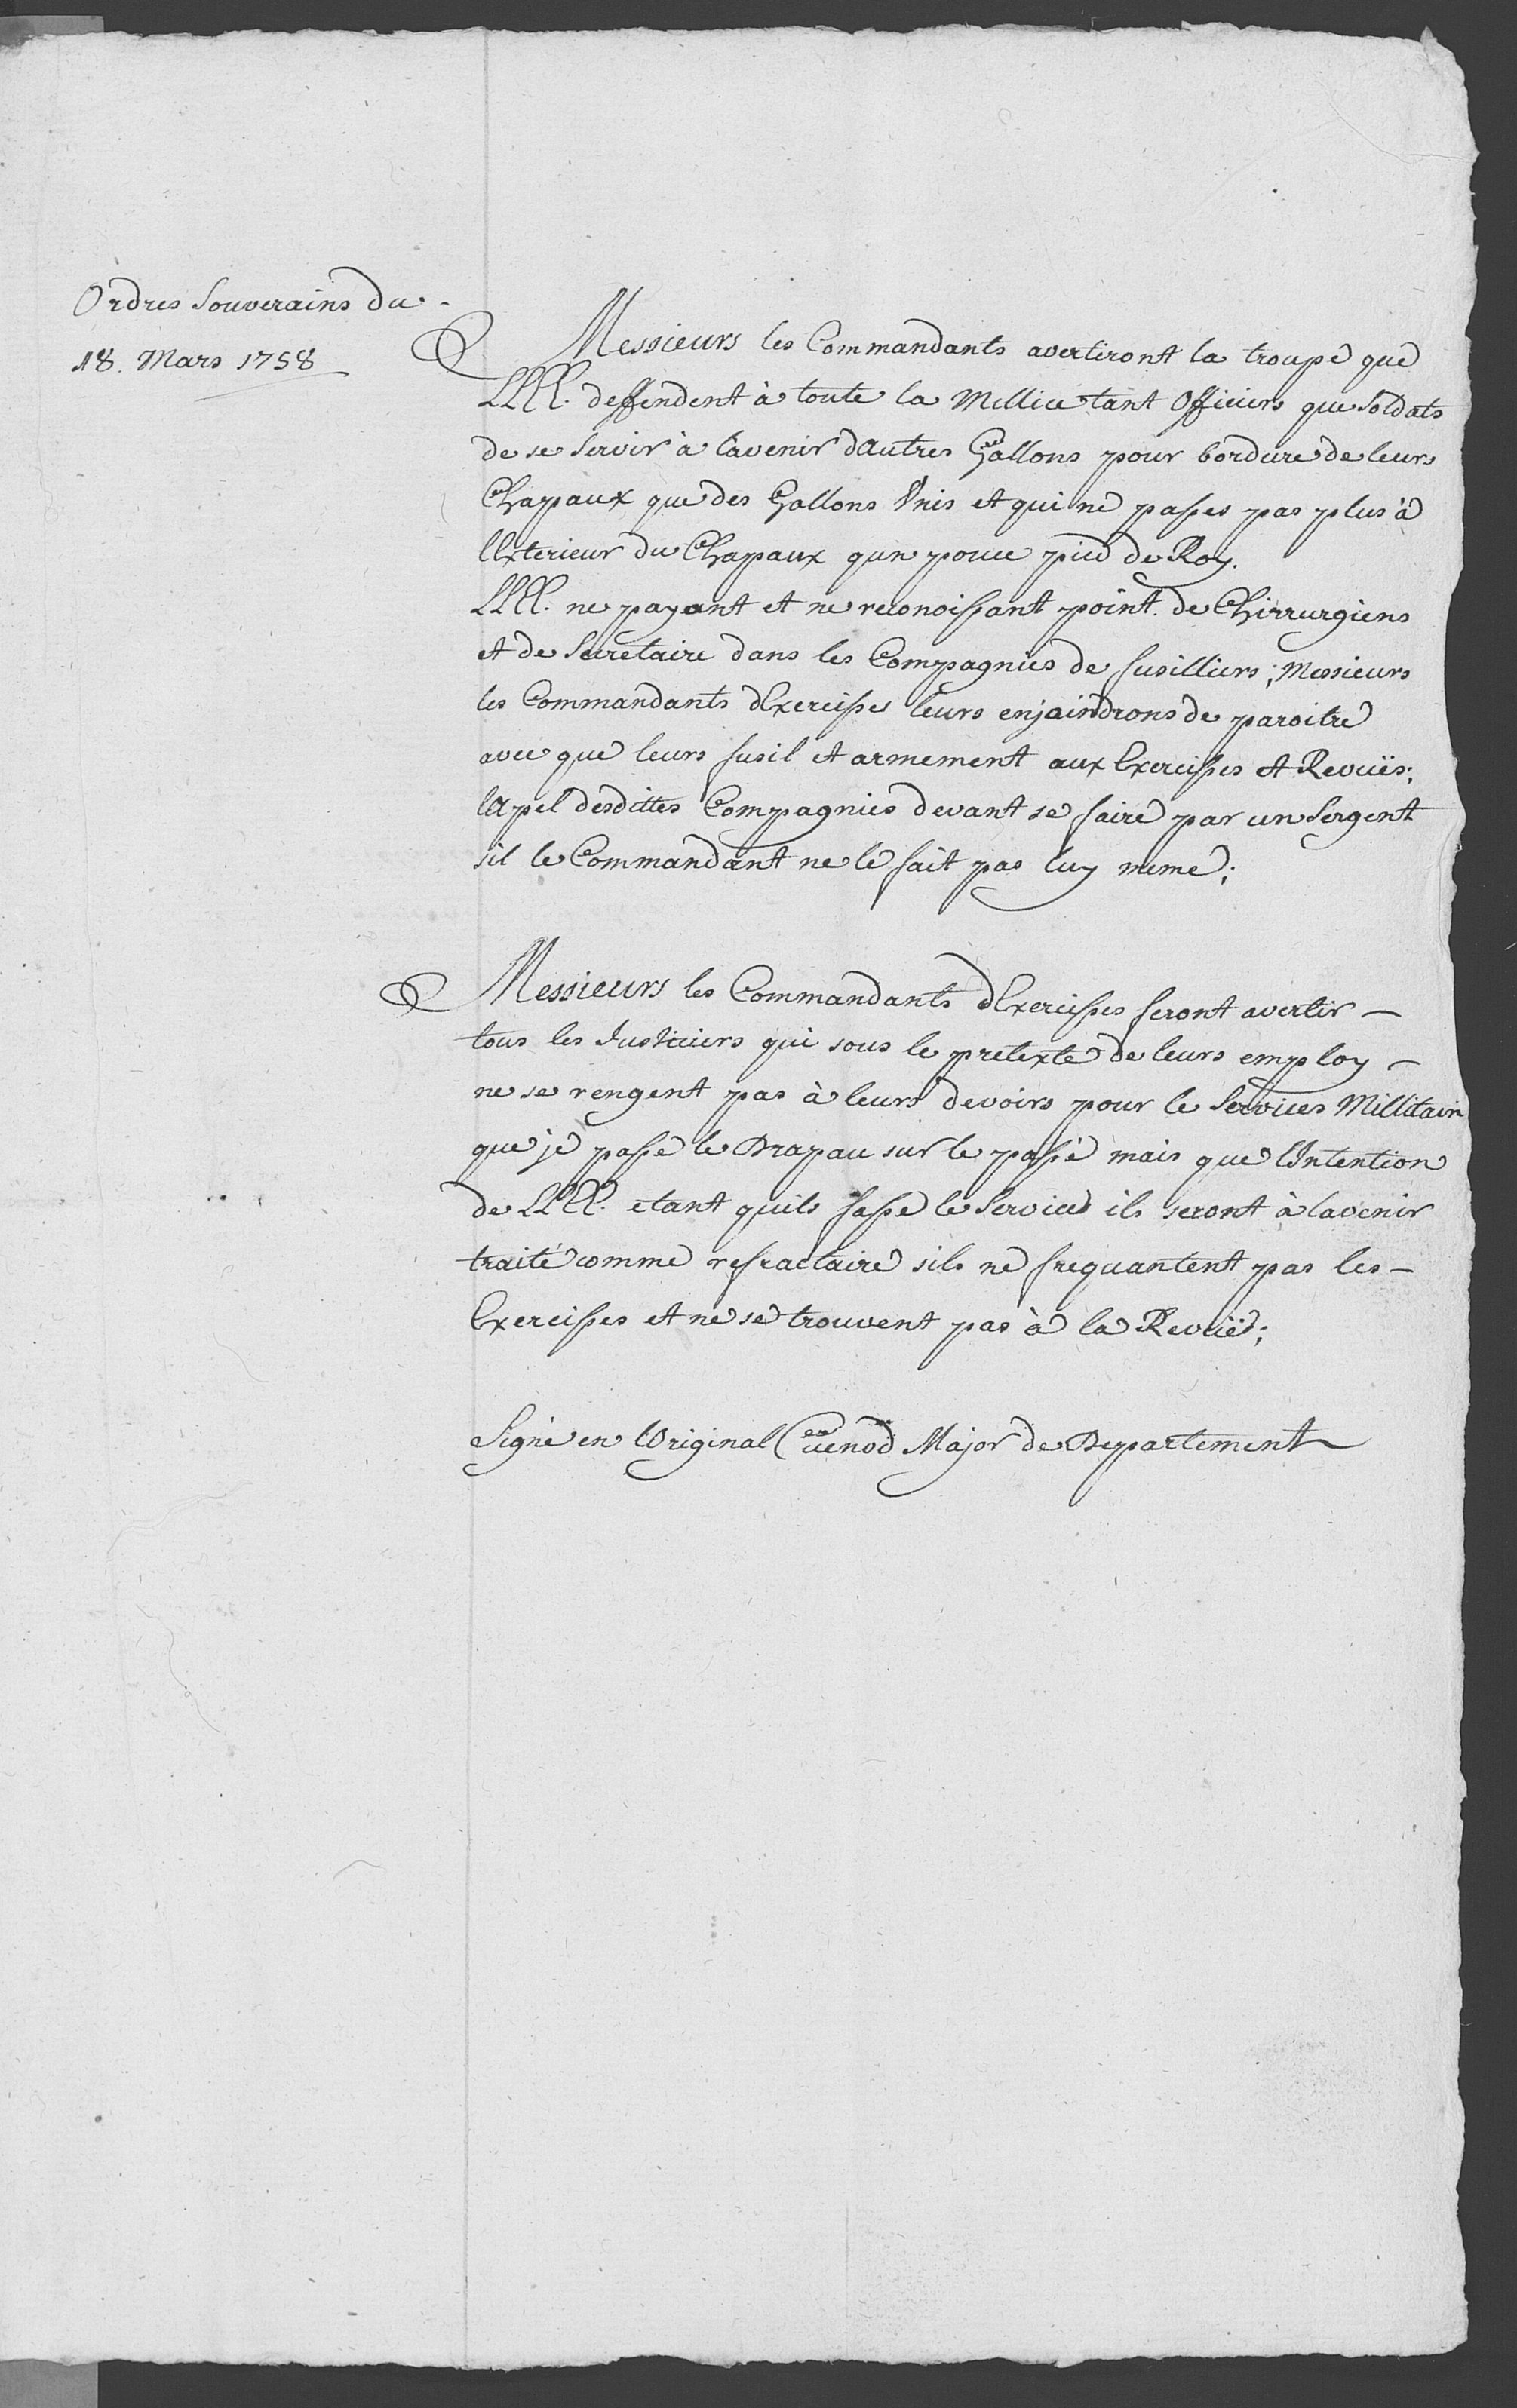 Ordres Souverains du
18. Mars 1758
Messieurs les Commandants avertiront la troupe que
LLEE. deffendent à toute la Millice tant Officiers que Soldats
de se servir à lavenir dautres Gallons pour bordure de leurs
Chapaux que des Gallons Unis et qui ne passes pas plus à
lExterieur du Chapaux qun pouce pied de Roy.
LLEE. ne payant et ne reconoissant point de Chirrurgiens
et de Secretaire dans les Compagnies de fusilliers; Messieurs
les Commandants dExercisses leurs enjoindrons de paroitre
avec que leurs fusil et armement aux Exercisses et Revuës;
lApel desdittes Compagnies devant se faire par un Sergent
sil le Commandant ne le fait pas luy meme;
Messieurs les Commandants dExercisses feront avertir -
tous les Justiciers qui sous le pretexte de leurs employ -
ne se rengent pas à leurs devoirs pour le Services Millitair
que je passe le Drapau sur le passé mais que lIntention
de LLEE. etant quils fasse le Service ils seront à lavenir
traité comme refractaire sils ne frequantent pas les -
Exercisses et ne se trouvent pas à la Revuë;
Signé en lOriginal Cuenod Major de Departement